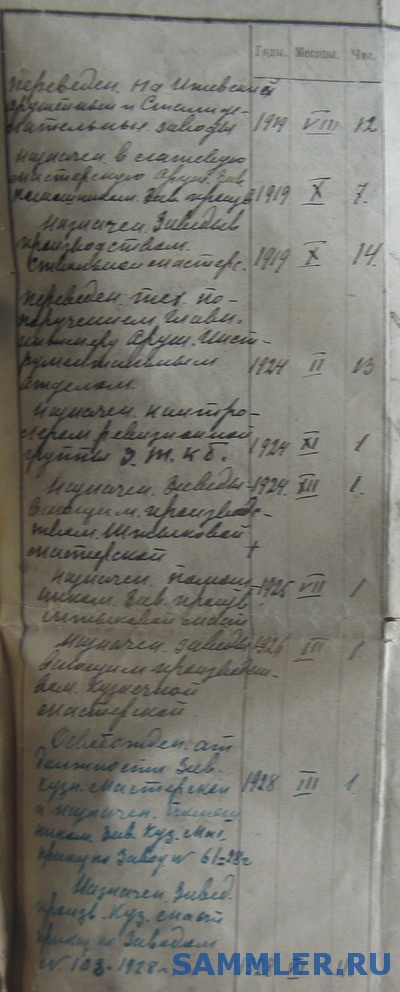 Годы. Месяцы. Чис.
переведен. на Ижевский
оружейный и Сталиде-
лательные заводы 1919 VIII 12
назначен. в
мастерскую Оруж. Зав.
помощником. Зав. произв. 1919 X 7.
назначен. Заведыв
производством.
ствольной мастерс. 1919 X 14.
переведен. тех. по-
поручением Главн.
инженера Оруж. Инст-
рументальным
отделом. 1924 II 13
назначен. контро-
лером ревизионной
группы Э. Т. К. Б. 1924 XI 1
назначен. Заведы- 1924 XII 1.
вающим. производс-
твом. Штыковой
мастерской
назначен. помощ
ником. Зав. произв 1925 VII 1
штыковой
назначен. заведы 1926 III 1
вающим производст-
вом. Кузнечной
мастерской
Освобожден. от
должности Зав.
Кузн. мастерской 1928 III 1.
и назначен. помощ
ником Зав. Куз. Маст.
приказ по Заводу № 61-28г
Назначен. Завед.
произв. Куз. маст
приказ по Заводам
№ 103-1928г.
SAMMLER.RU